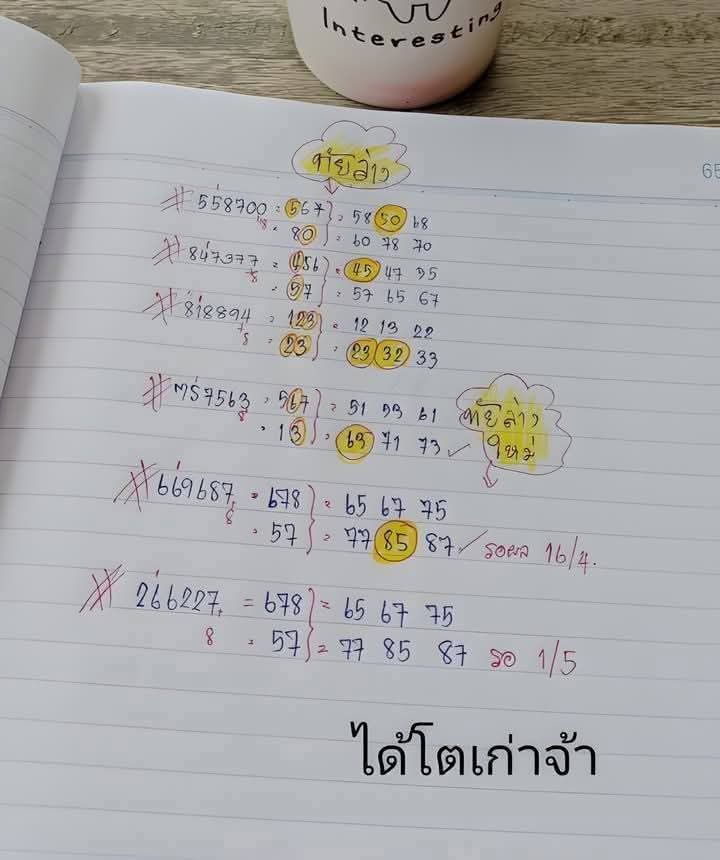 Interesting
65
ทัยล่าง
558700 = 567 } = 58 50 68
18 = 80 } = 60 78 70
847377 = 456 } = 45 47 55
8 = 57 } = 57 65 67
818894 = 123 } = 12 13 22
8 = 23 } = 23 32 33
757563 = 567 } = 51 53 61
8 = 13 } = 63 71 73 ✓
ทัยล่าง
ใหม่
669687 = 678 } = 65 67 75
8 = 57 } = 77 85 87 ✓ รอผล 16/4.
266227 = 678 } = 65 67 75
8 = 57 } = 77 85 87 รอ 1/5
ได้โตเก่าจ้า